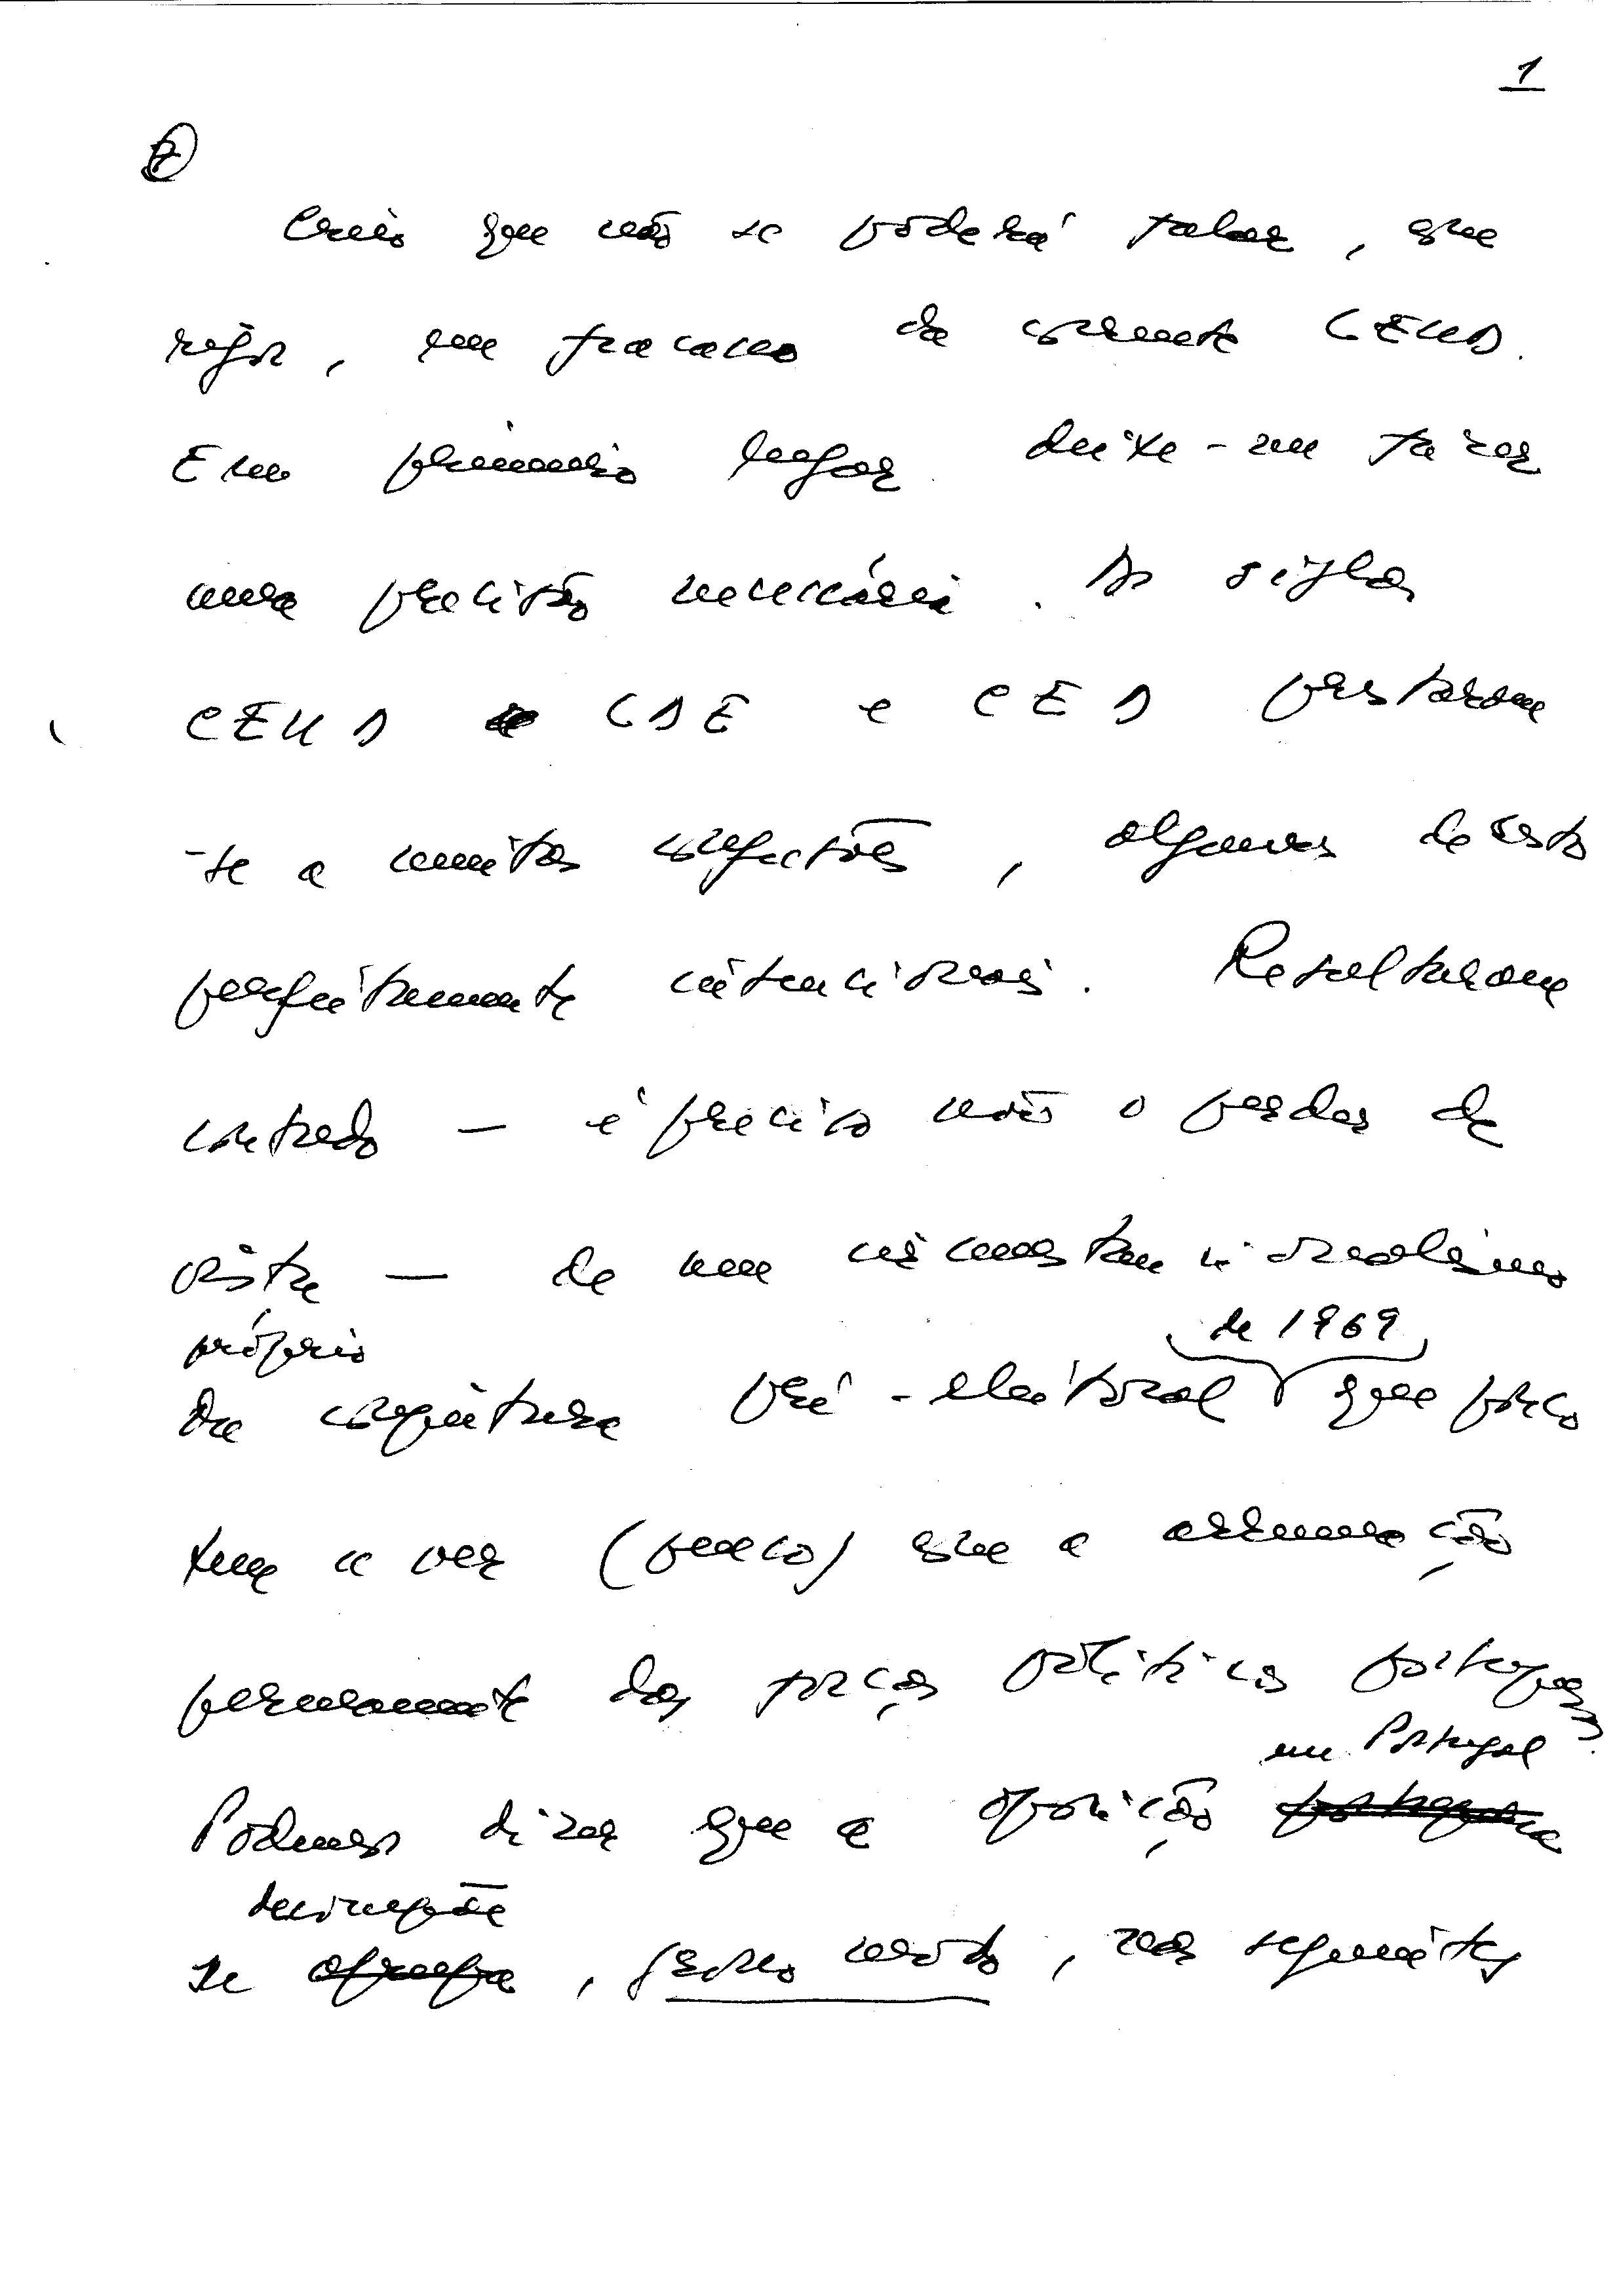 1
7
Creio que não se poderá falar, em
rigor, em fracasso da corrente CEUD.
Em primeiro lugar deixe-me fazer
uma precisão necessária. As siglas
CEUD CDE e CED prestaram
-se a muitas confusões, algumas de resto
perfeitamente intencionais. Resultaram
contudo — é preciso não o perder de
vista — de um circunstancionalismo
próprio
da conjuntura pré-eleitoral de 1969 que pouco
tem a ver (penso) que a arrumação
permanente das forças políticas portuguesas.
em Portugal
Podemos dizer que a oposição portuguesa
se agrupa, grosso modo, nas seguintes